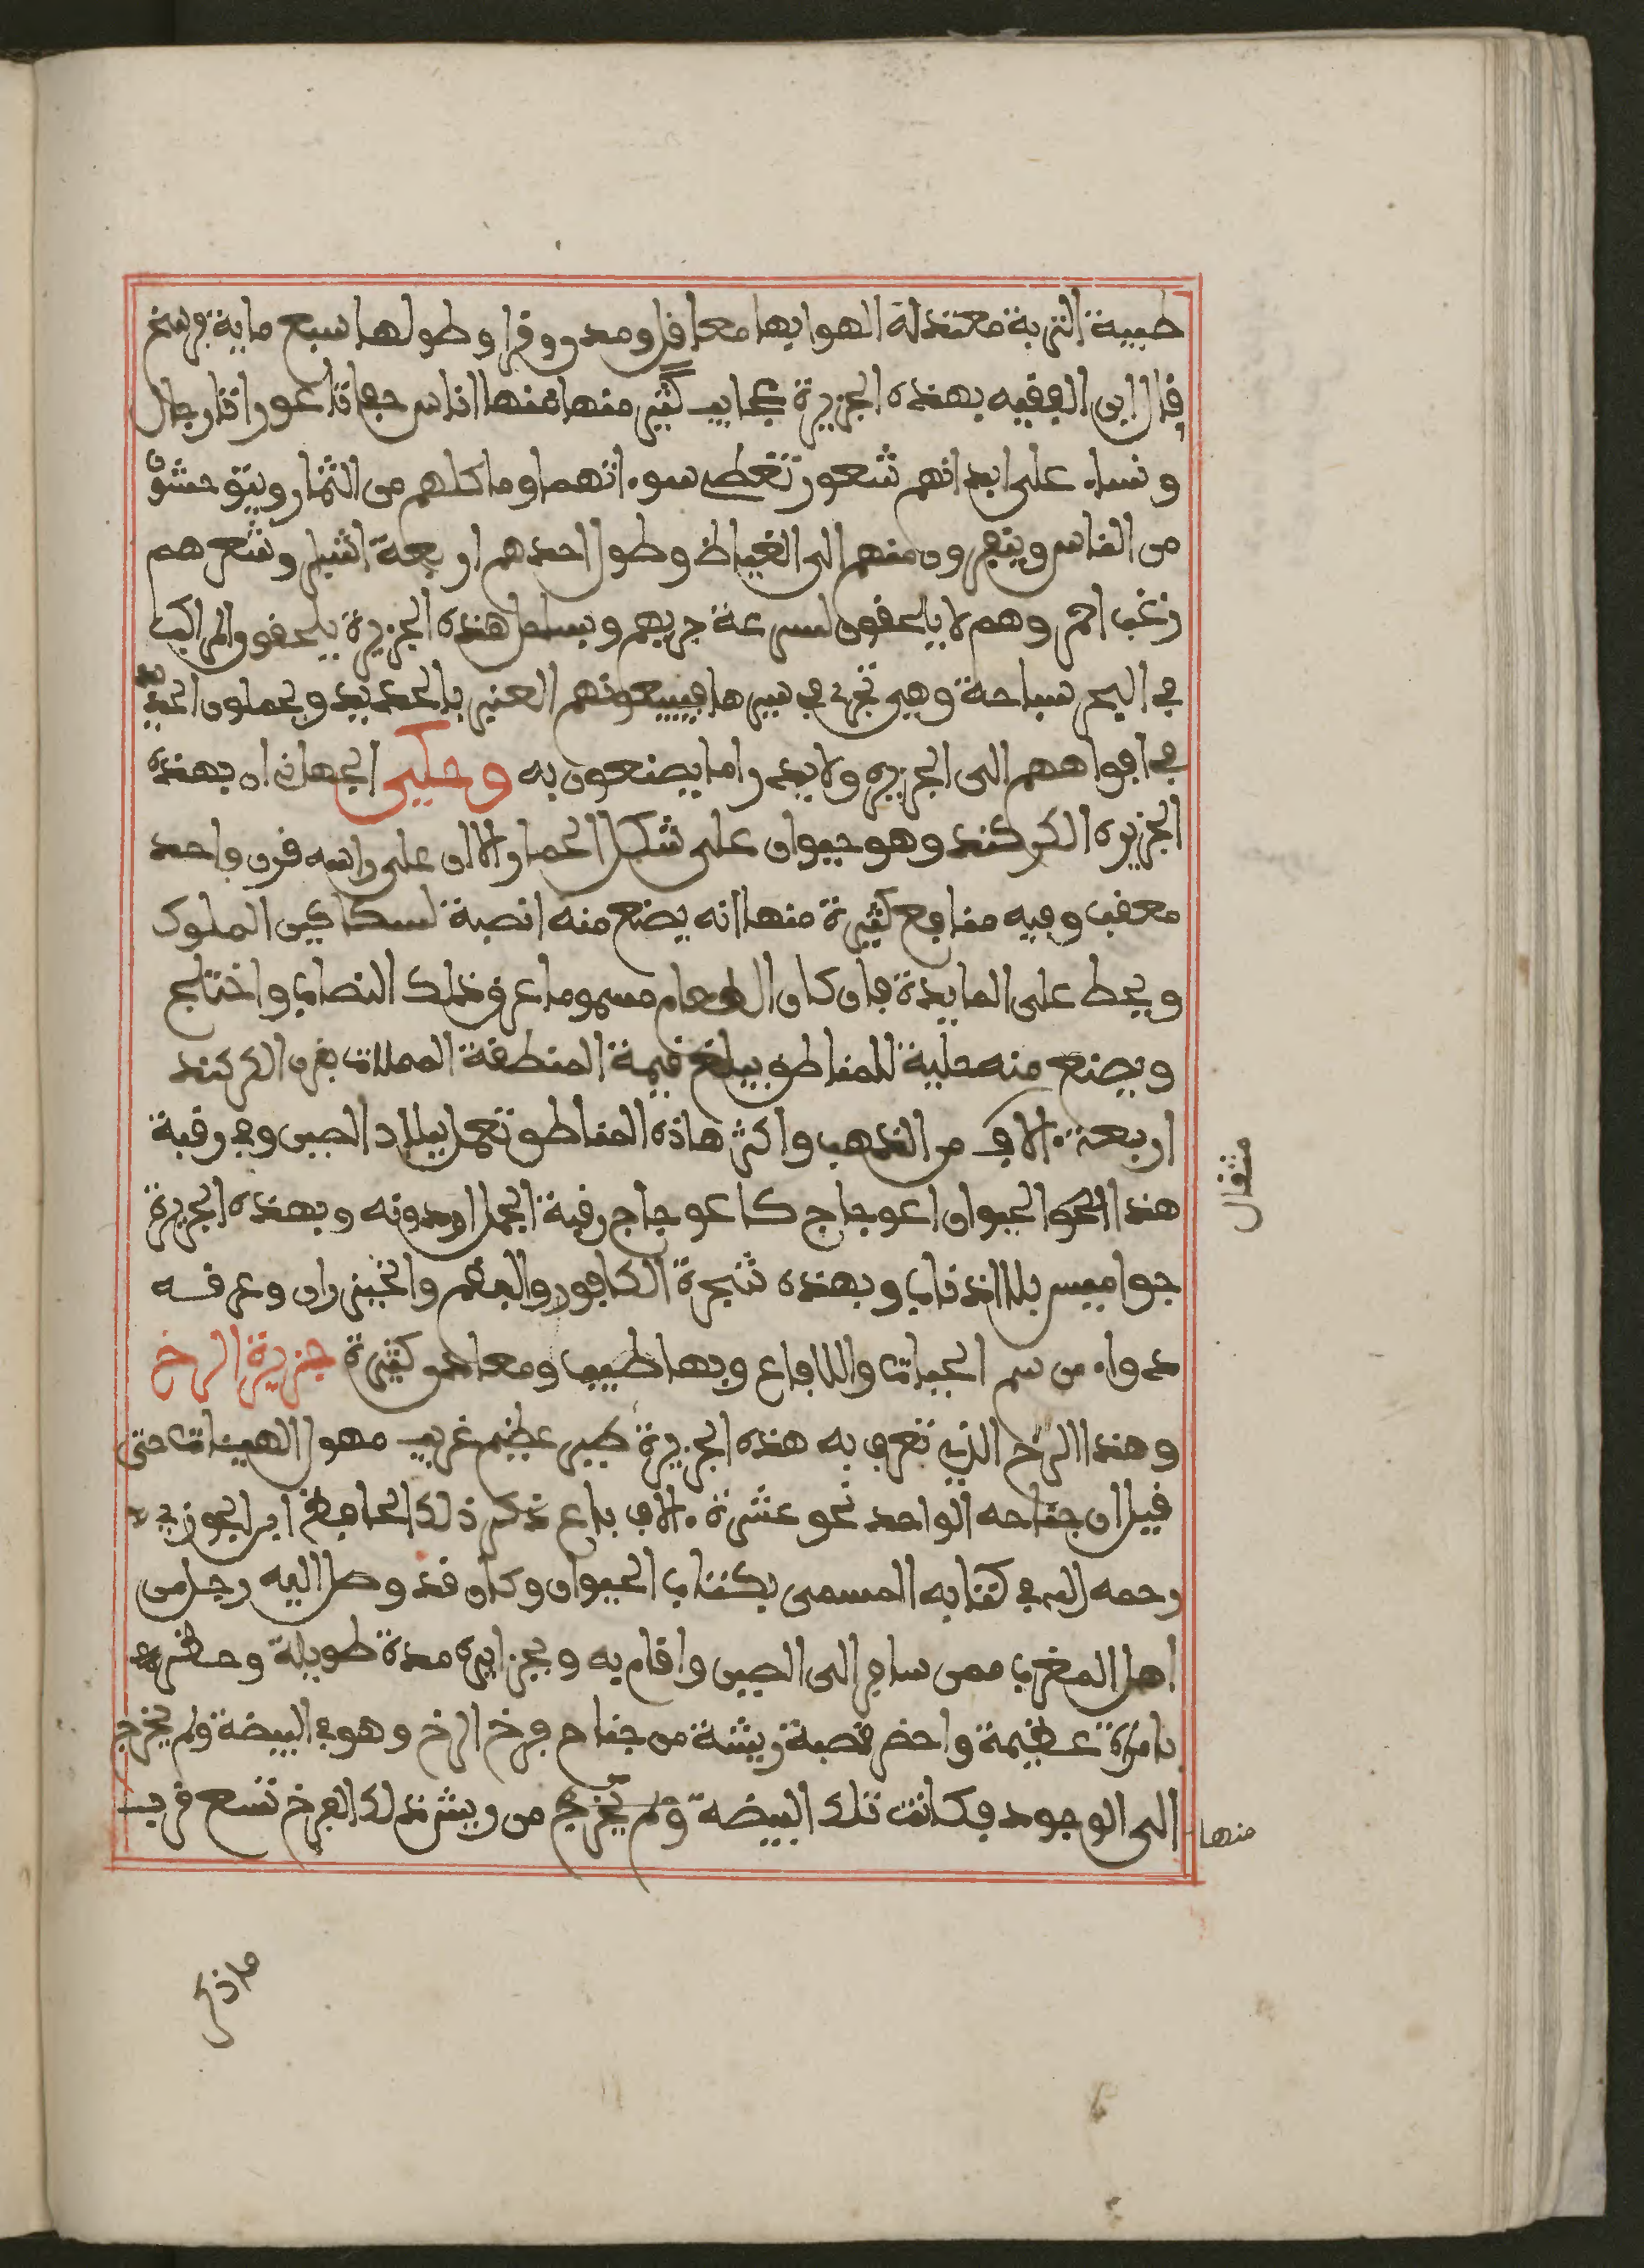 طيبة التربة معتدلة الهوا بها معاقل ومدن وقرا وطولها سبع ماية فرسخ
قال ابن الفقيه بهذه الجزيرة عجايب كثير منها منها اناس حفاتا عوراتا رجال
ونساء على ابدانهم شعور تغطي سوءاتهم وماكلهم من الثمار ويتوحشون
من الناس وينفرون منهم الى الغياظ وطول احدهم اربعة اشبار وشعرهم
زغب احمر وهم لا يلحقون لسرعة جريهم وبساحل هذه الجزيرة يلحقون المراكب
في البحر سباحة وهي تجري في سيرها فيبيعونهم العنبر بالحديد ويحملون الحديد
في افواههم الى الجزيره ولا يدرا ما يصنعون به وحكى الجهاني ان بهذه
الجزيره الكركند وهو حيوان على شكل الحمار الا ان على راسه قرن واحد
معقف وفيه منافع كثيرة منها انه يصنع منه انصبة لسكاكين الملوك
ويحط على المايدة فان كان الطعام مسموما عرق ذلك النصاب واختلج
ويصنع منه حلية للمناطق يبلغ قيمة المنطقة المحلات بقرن الكركند
اربعة ءالاف من الذهب واكثر هاذه المناطق تعمل ببلاد الصين وفي رقبة
هذا الحيوان اعوجاج كاعوجاج رقبة الجمل او دونه وبهذه الجزيرة
جواميس بلا اذناب وبهذه شجرة الكافور والبقم والخيزران وعرقه
دواء من سم الحيات والافاع وبها طيب ومعادن كثيرة جزيرة الرخ
وهذا الرخ الذي تعرف به هذه الجزيرة طير عظيم غريب مهول الهيئات حتى
قيل ان جناحه الواحد نحو عشرة ءالاف باع ذكر ذلك الحافظ ابن الجوزي
رحمه الله في كتابه المسمى بكتاب الحيوان وكان قد وصل اليه رجل من
اهل المغرب ممن سافر الى الصين واقام به وبجزايره مدة طويلة وحضر
بامراة عظيمة واحضر قصبة ريشة من جناح فرخ الرخ وهو في البيضة ولم يخرج
الى الوجود فكانت تلك البيضة ولم يخرج من ريش ذلك الفرخ تسع قرب
مثقال
منها